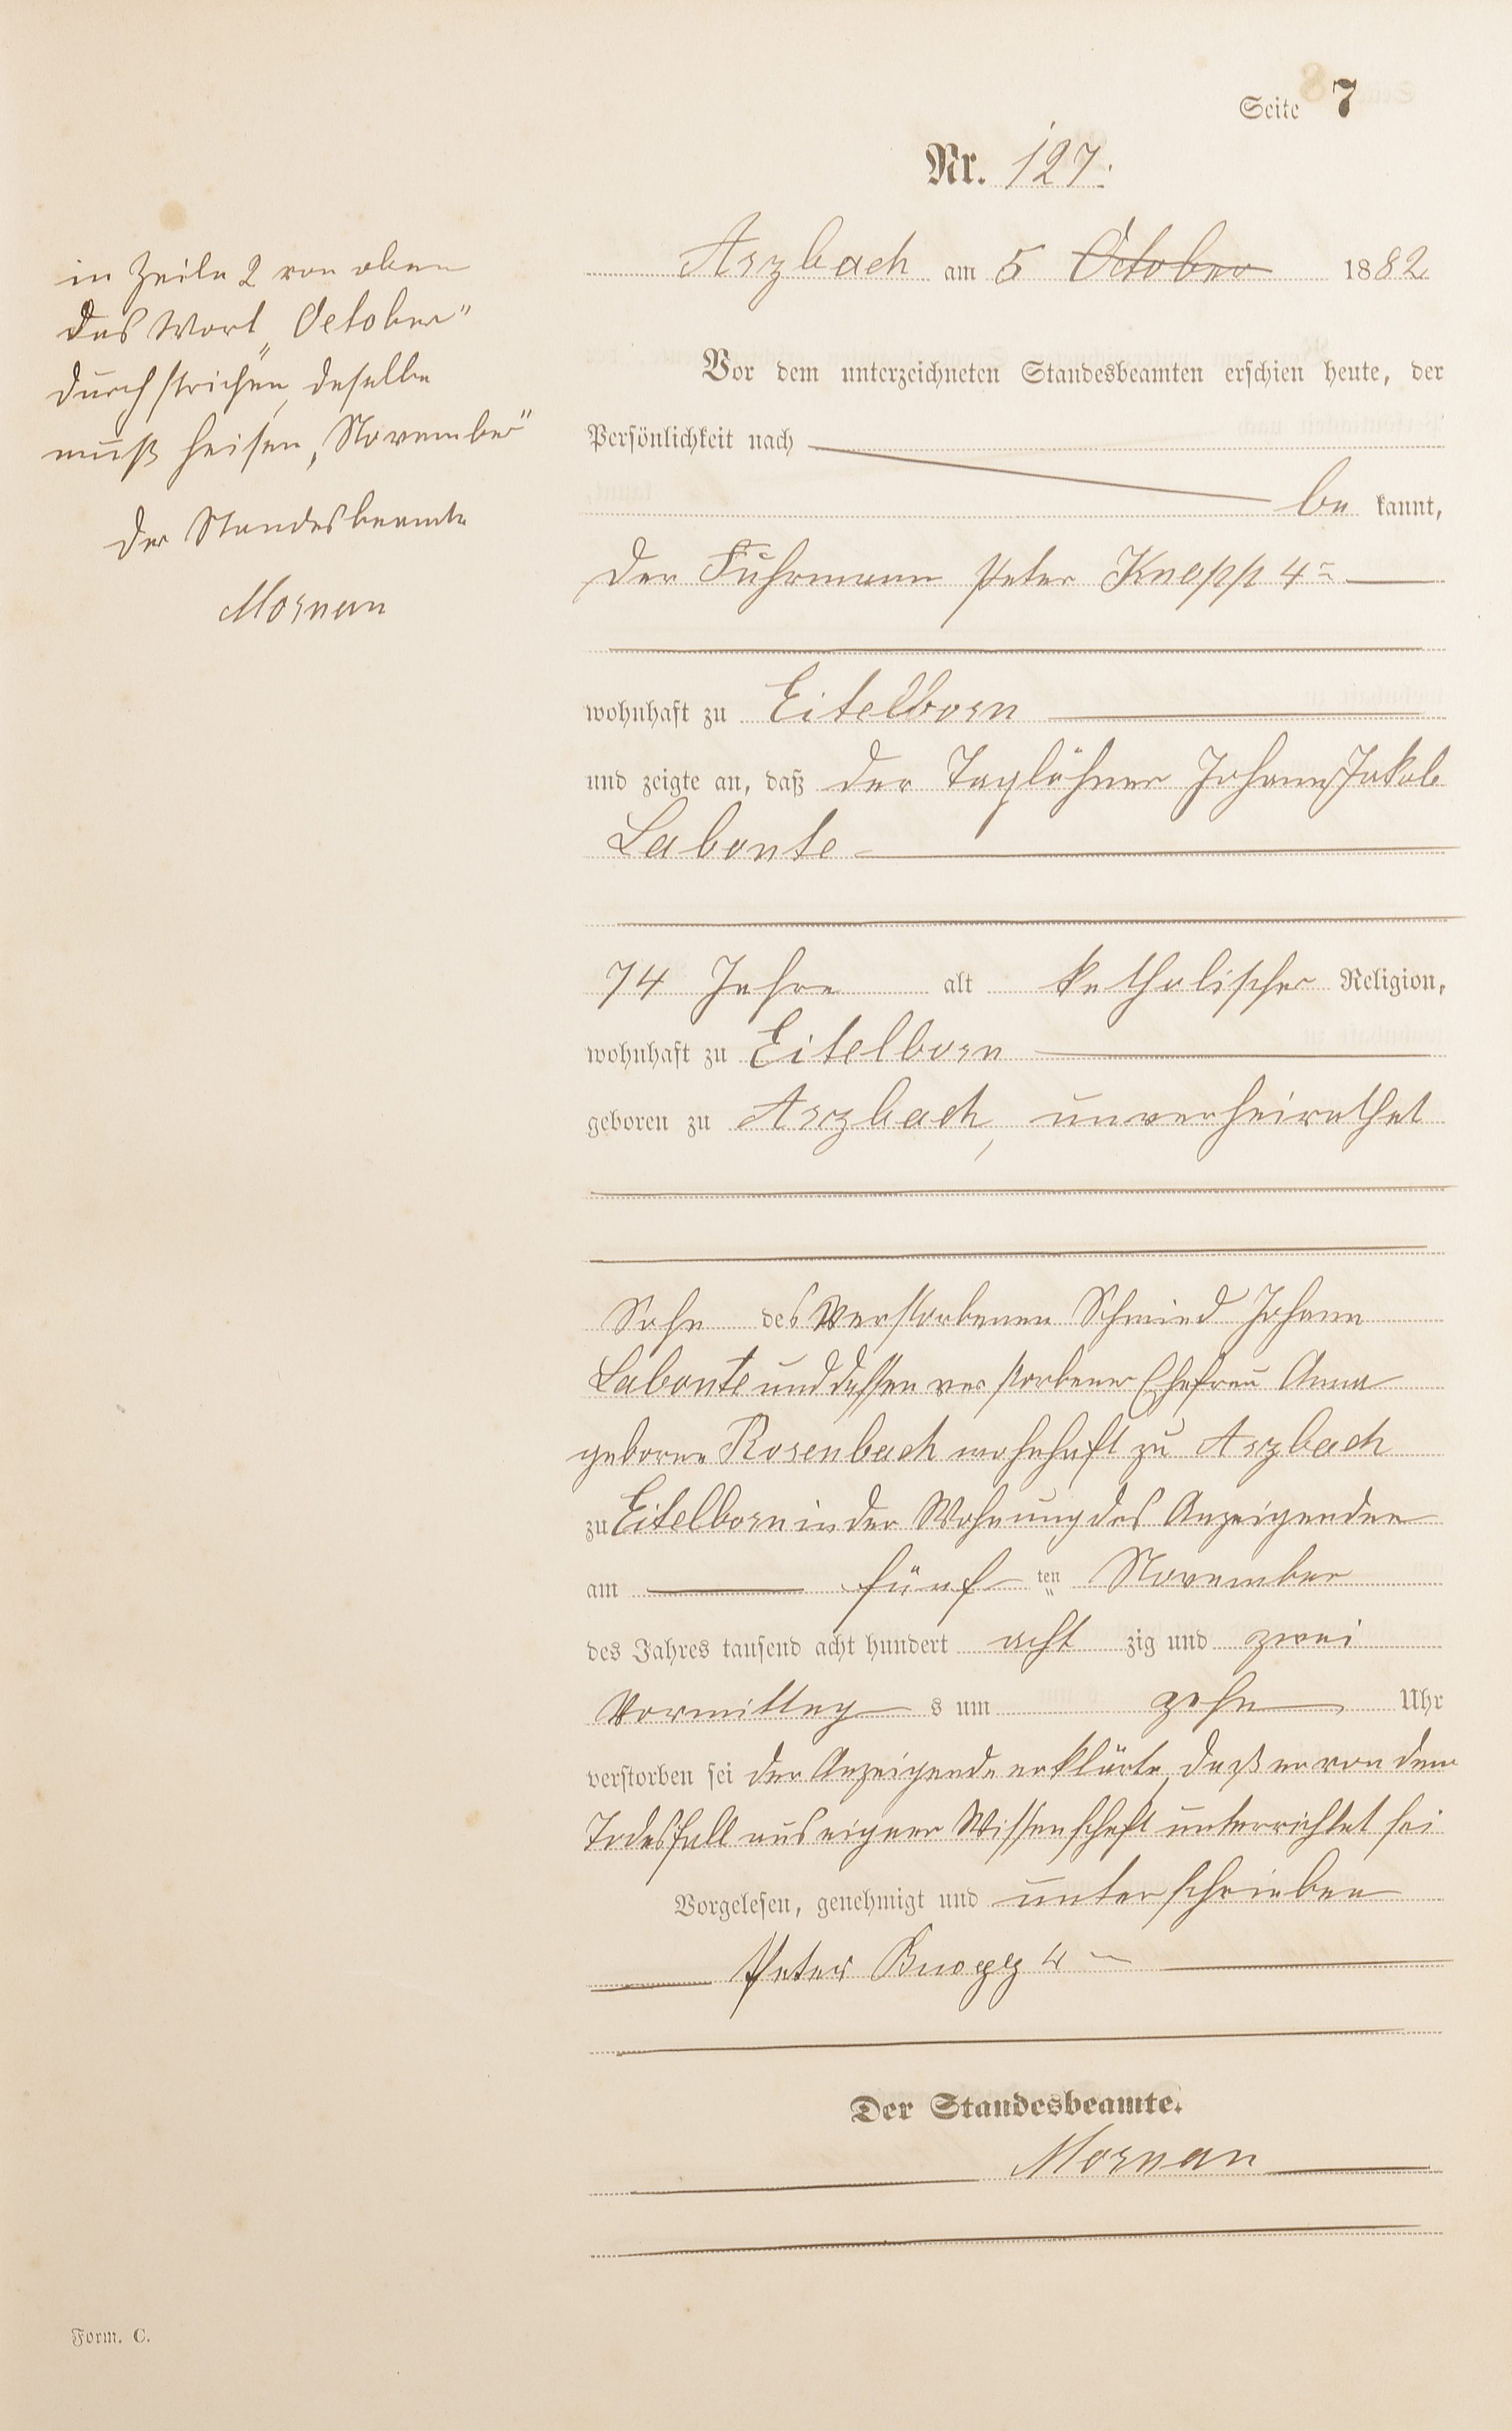 Seite 7
Nr. 127.
Arzbach am 5 October 1882
in Zeile 2 von oben
das Wort „October"
durchstrichen, deselbe
muß heisen „November"
Der Standesbeamte
Vor dem unterzeichneten Standesbeamten erschien heute, der
Persönlichkeit nach
be kannt,
der Fuhrmann Peter Knopp 4r
wohnhaft zu Eitelborn
und zeigte an, daß der Taglöhner Johann Jakob
Labonte
74 Jahre alt katholischer Religion,
wohnhaft zu Eitelborn
geboren zu Arzbach, unverheirathet
Sohn des verstorbenen Schmied Johann
Labonte und dessen verstorbener Ehefrau Anna
geborne Rosenbach wohnhaft zu Arzbach
zu Eitelborn in der Wohnung des Anzeigenden
am fünf ten November
des Jahres tausend acht hundert acht zig und zwei
Vormittag s um zehn Uhr
verstorben sei der Anzeigende erklärte, daß er von dem
Todesfall aus eigner Wissenschaft unterrichtet sei
Vorgelesen, genehmigt und unterschrieben
Peter Knopp 4
Der Standesbeamte.
Form. C.